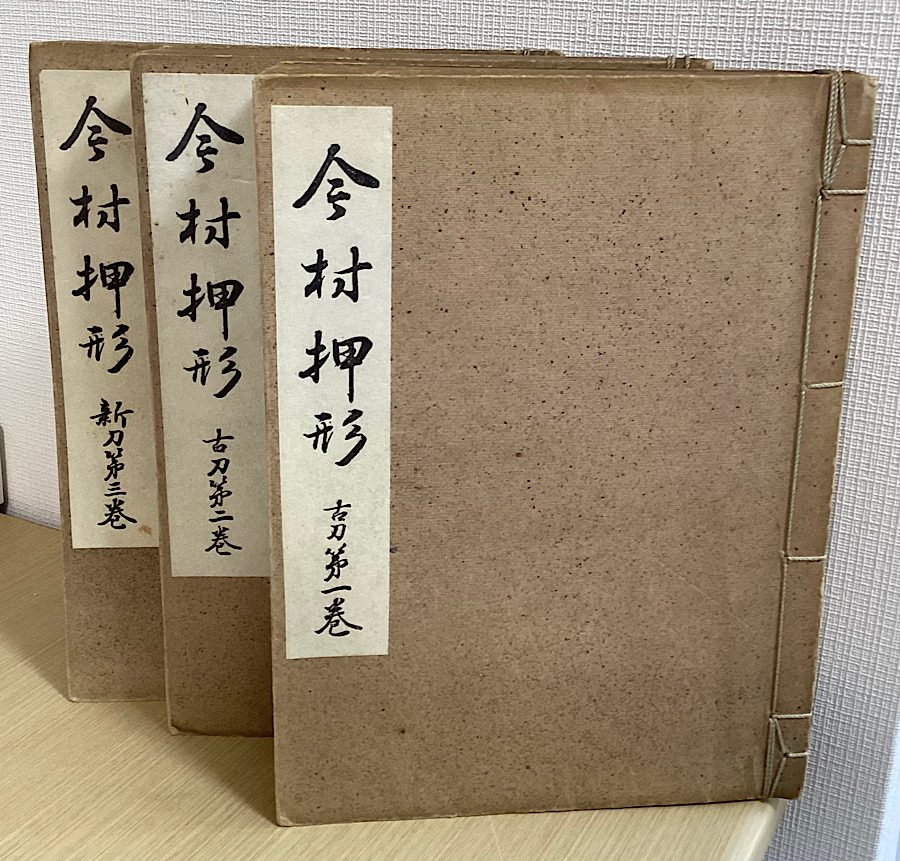 今村押形 古刀第一巻
今村押形 古刀第二巻
今村押形 新刀第三巻